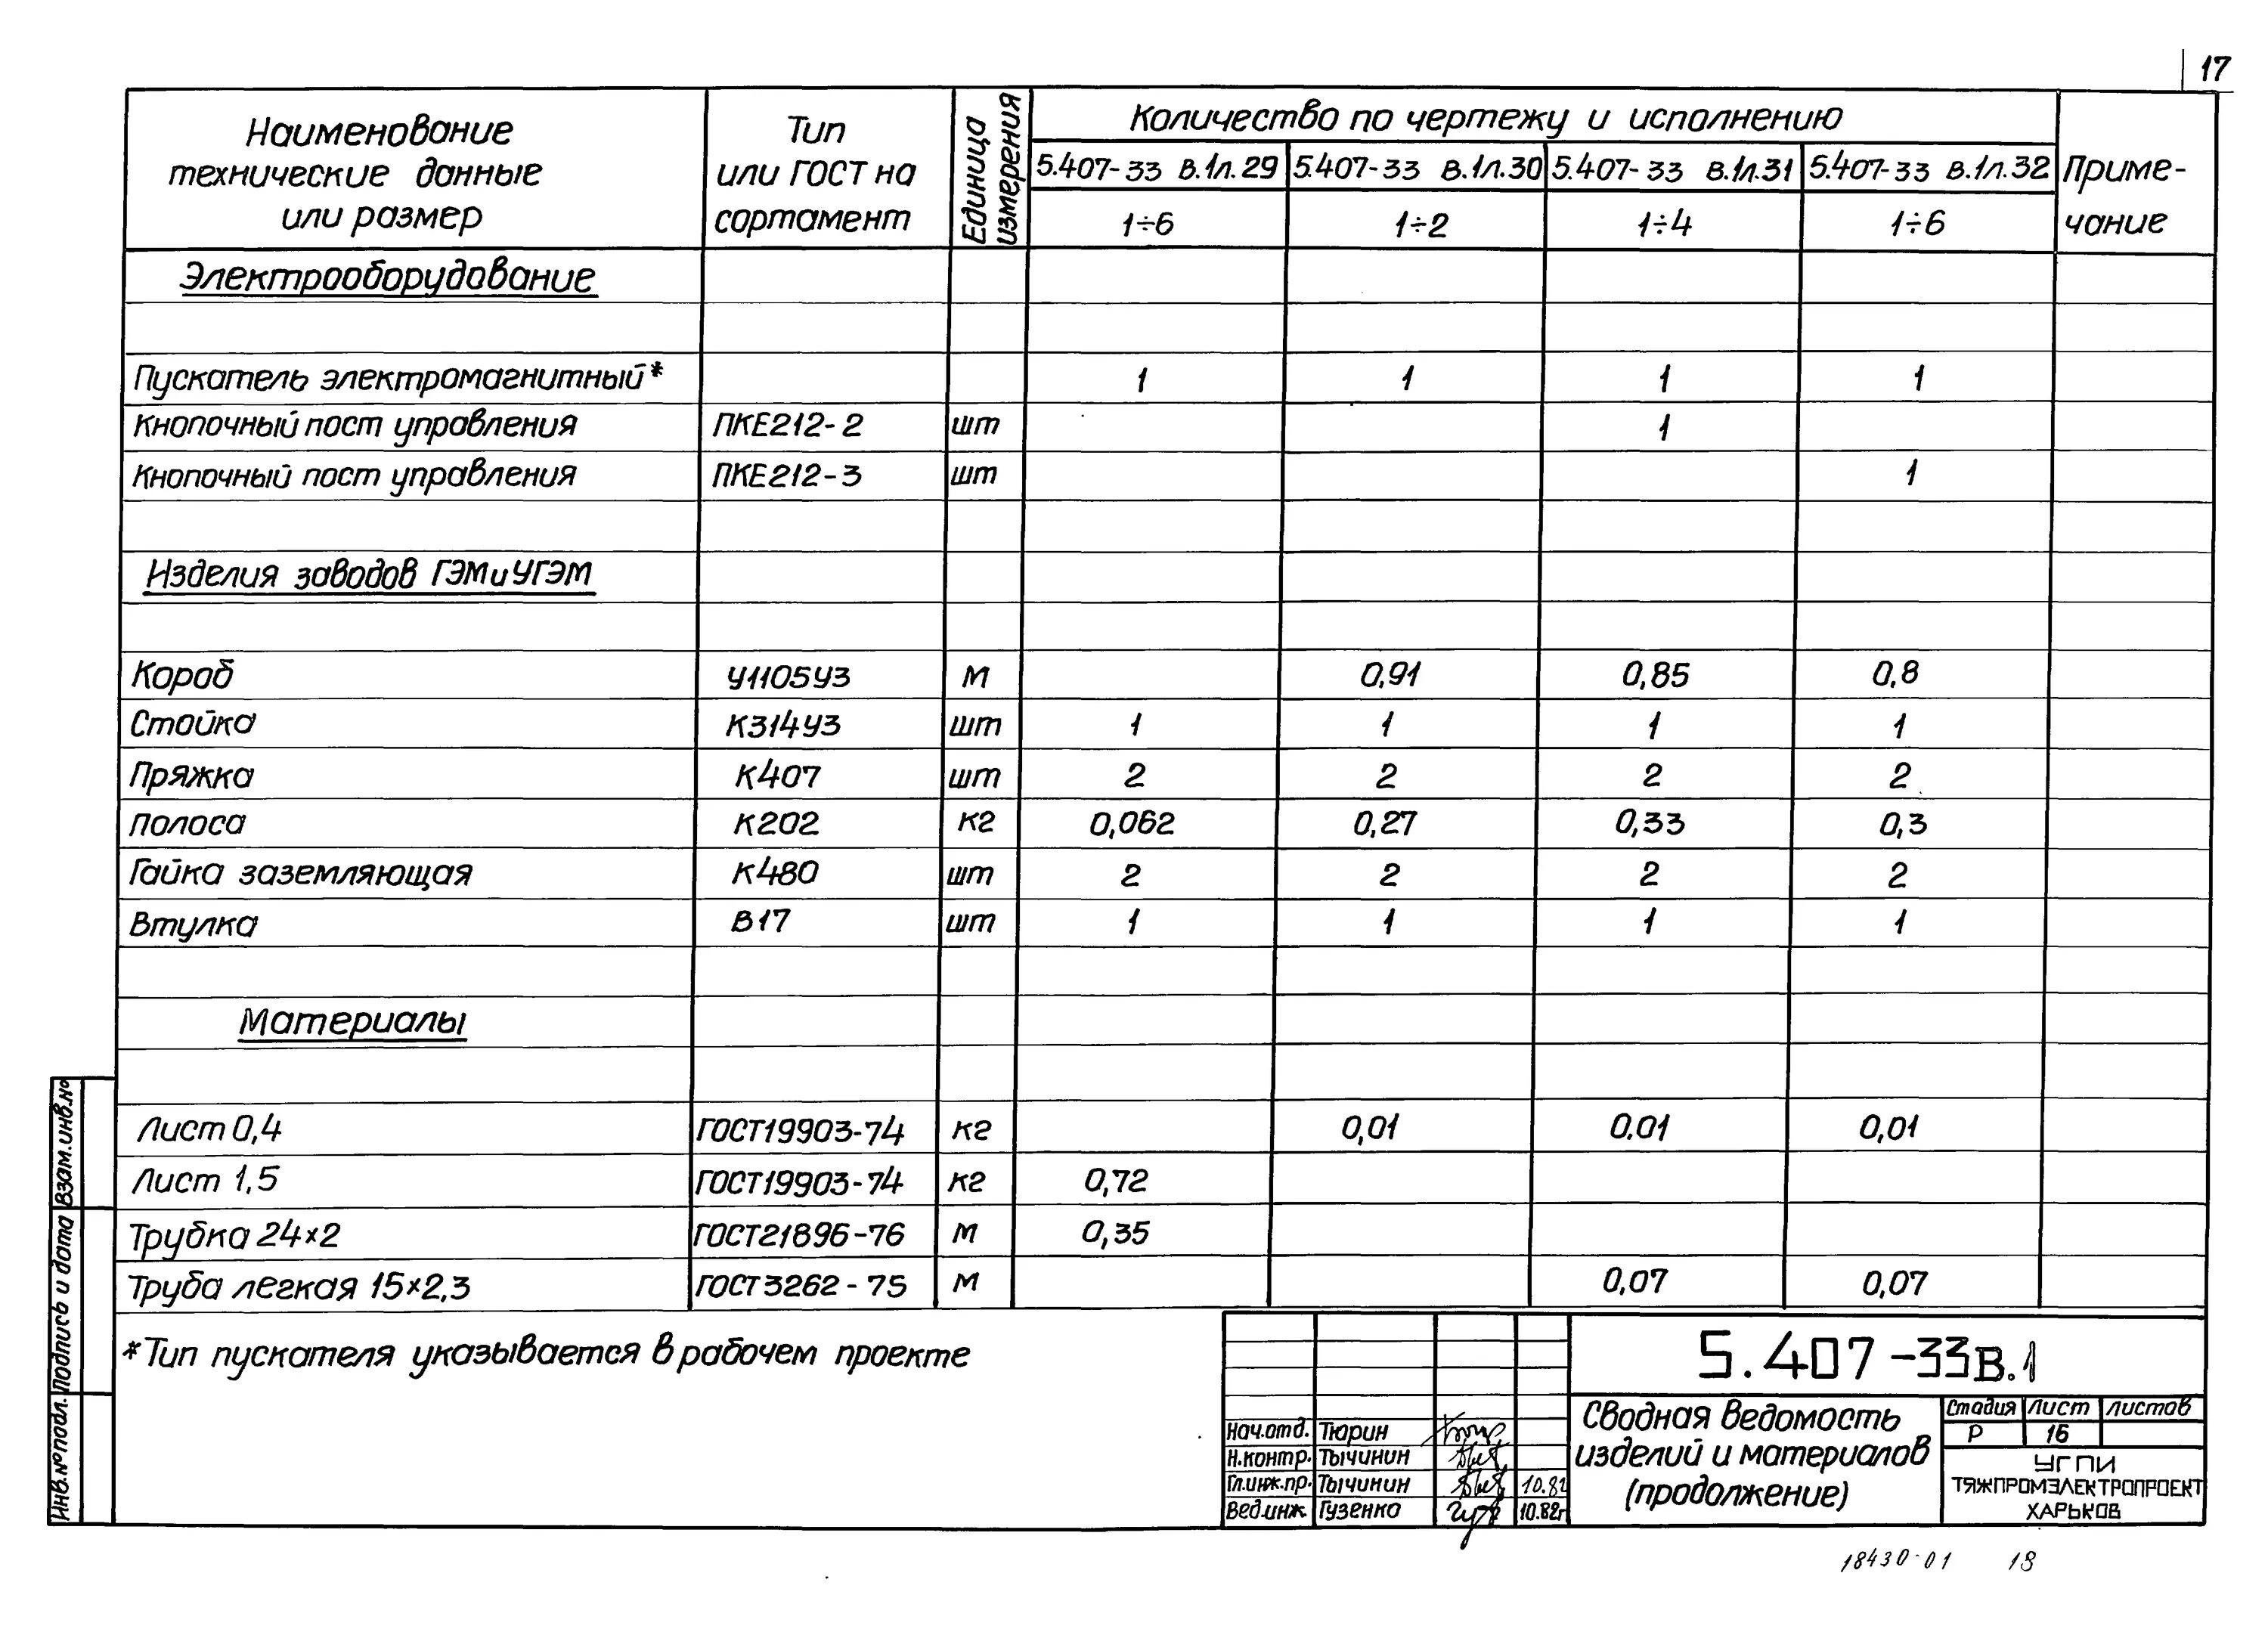 17
Наименование технические данные или размер | Тип или ГОСТ на сортамент | Единица измерения | Количество по чертежу и исполнению | Примечание
5.407-33 В.1л.29 | 5.407-33 В.1л.30 | 5.407-33 В.1л.31 | 5.407-33 В.1л.32
1÷6 | 1÷2 | 1÷4 | 1÷6
Электрооборудование
Пускатель электромагнитный* | 1 | 1 | 1 | 1
Кнопочный пост управления | ПКЕ212-2 | шт | 1
Кнопочный пост управления | ПКЕ212-3 | шт | 1
Изделия заводов ГЭМ и УГЭМ
Короб | У1105У3 | м | 0,91 | 0,85 | 0,8
Стойка | К314У3 | шт | 1 | 1 | 1 | 1
Пряжка | К407 | шт | 2 | 2 | 2 | 2
Полоса | К202 | кг | 0,062 | 0,27 | 0,33 | 0,3
Гайка заземляющая | К480 | шт | 2 | 2 | 2 | 2
Втулка | В17 | шт | 1 | 1 | 1 | 1
Материалы
Лист 0,4 | ГОСТ19903-74 | кг | 0,01 | 0,01 | 0,01
Лист 1,5 | ГОСТ19903-74 | кг | 0,72
Трубка 24×2 | ГОСТ21896-76 | м | 0,35
Труба легкая 15×2,3 | ГОСТ3262-75 | м | 0,07 | 0,07
*Тип пускателя указывается в рабочем проекте
Взам.инв.№
Подпись и дата
Инв.№ подл.
5.407-33В.1
Нач.отд. Тюрин
Н.контр. Тычинин
Гл.инж.пр. Тычинин 10.82
Вед.инж. Гузенко 10.82г
Сводная ведомость
изделий и материалов
(продолжение)
Стадия Лист Листов
Р 16
УГПИ
ТЯЖПРОМЭЛЕКТРОПРОЕКТ
ХАРЬКОВ
18430-01 18